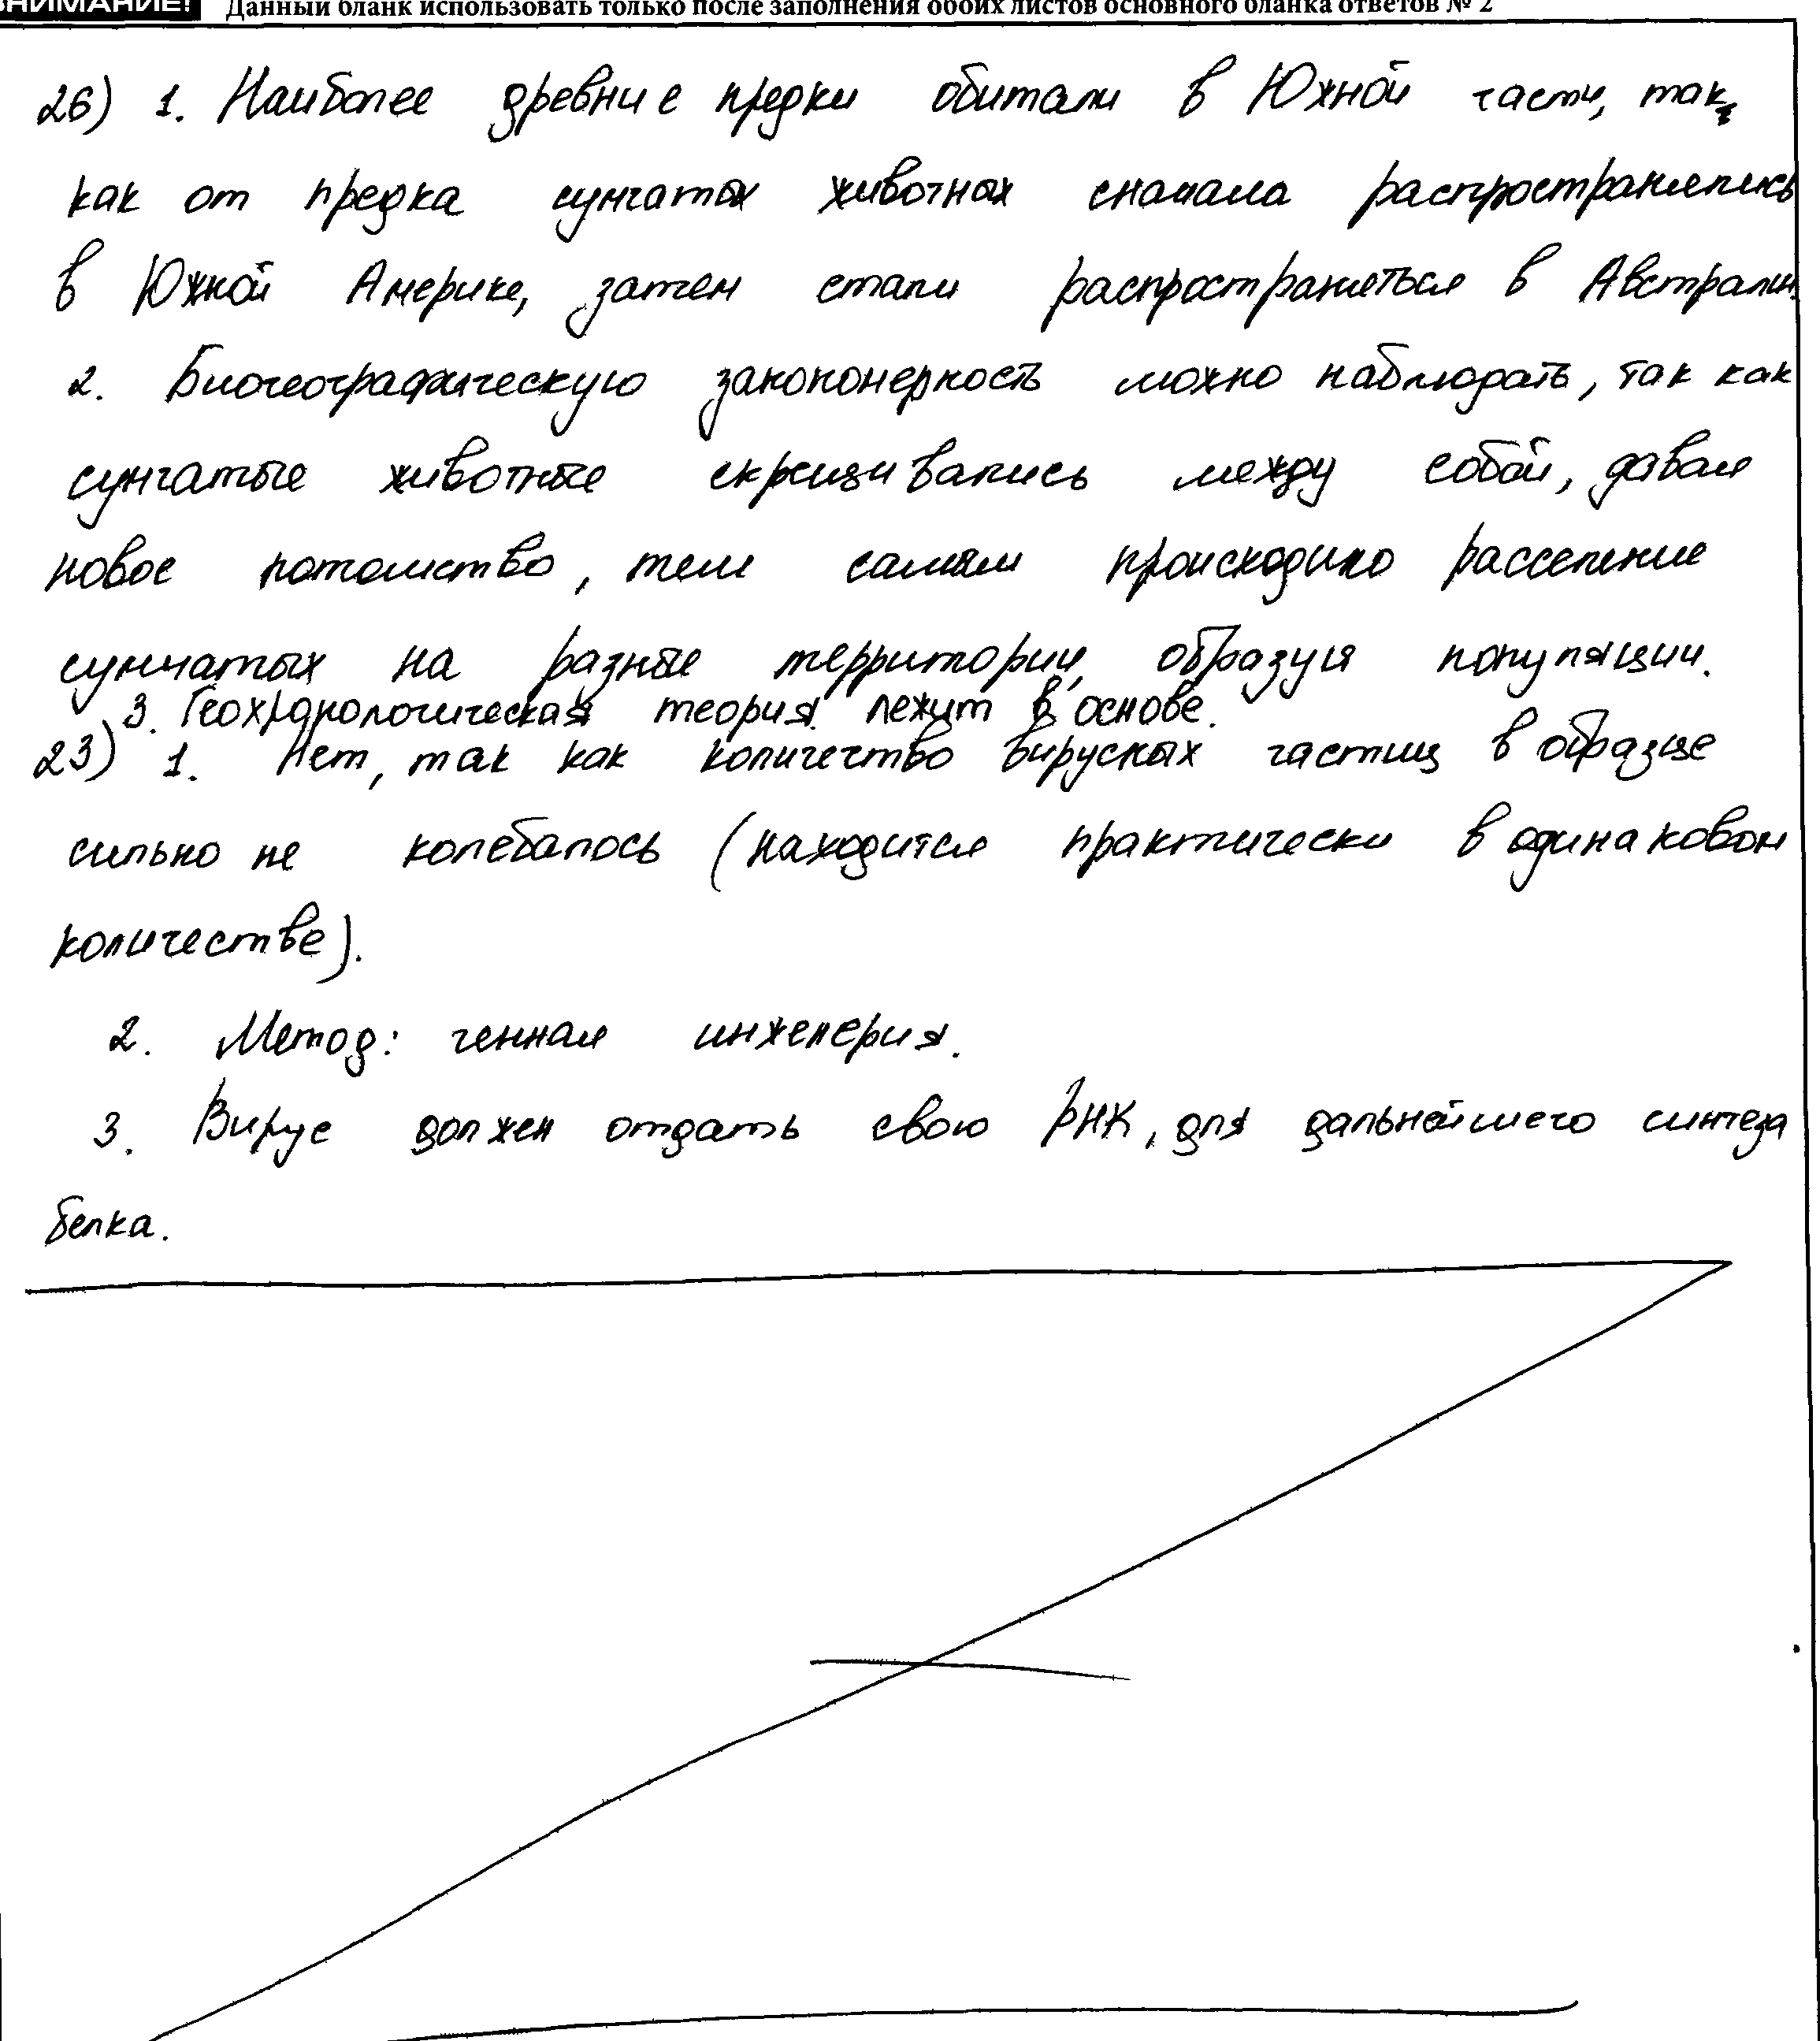 ВНИМАНИЕ! Данный бланк использовать только после заполнения обоих листов основного бланка ответов № 2
26) 1. Наиболее древние предки обитали в Южной части, так,
как от предка сумчатых животных сначала распространялись
в Южной Америке, затем стали распространяться в Австралии.
2. Биогеографическую закономерность можно наблюдать, так как
сумчатые животные скрещивались между собой, давая
новое потомство, тем самым происходило расселение
сумчатых на разные территории, образуя популяции.
3. Геохронологическая теория лежит в основе.
23) 1. Нет, так как количество вирусных частиц в образце
сильно не колебалось (находится практически в одинаковом
количестве).
2. Метод: генная инженерия.
3. Вирус должен отдать свою РНК, для дальнейшего синтеза
белка.